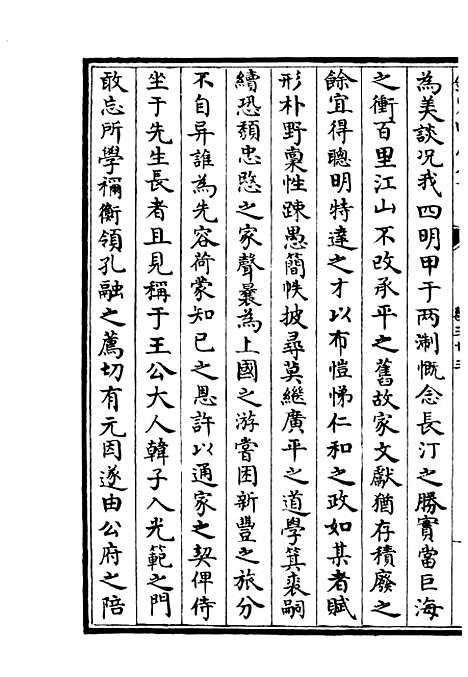 為美談况我四明甲于两淛慨念長汀之勝實當巨海
之衝百里江山不改承平之舊故家文獻猶存積廢之
餘宜得聰明特達之才以布愷悌仁和之政如某者賦
形朴野稟性踈愚簡帙披尋莫繼廣平之道學箕裘嗣
續恐頽忠愍之家聲曩為上國之游嘗困新豐之旅分
不自异誰為先容荷蒙知已之恩許以通家之契俾侍
坐于先生長者且見稱于王公大人韓子入光範之門
敢忘所學禰衡領孔融之薦切有元因遂由公府之陪